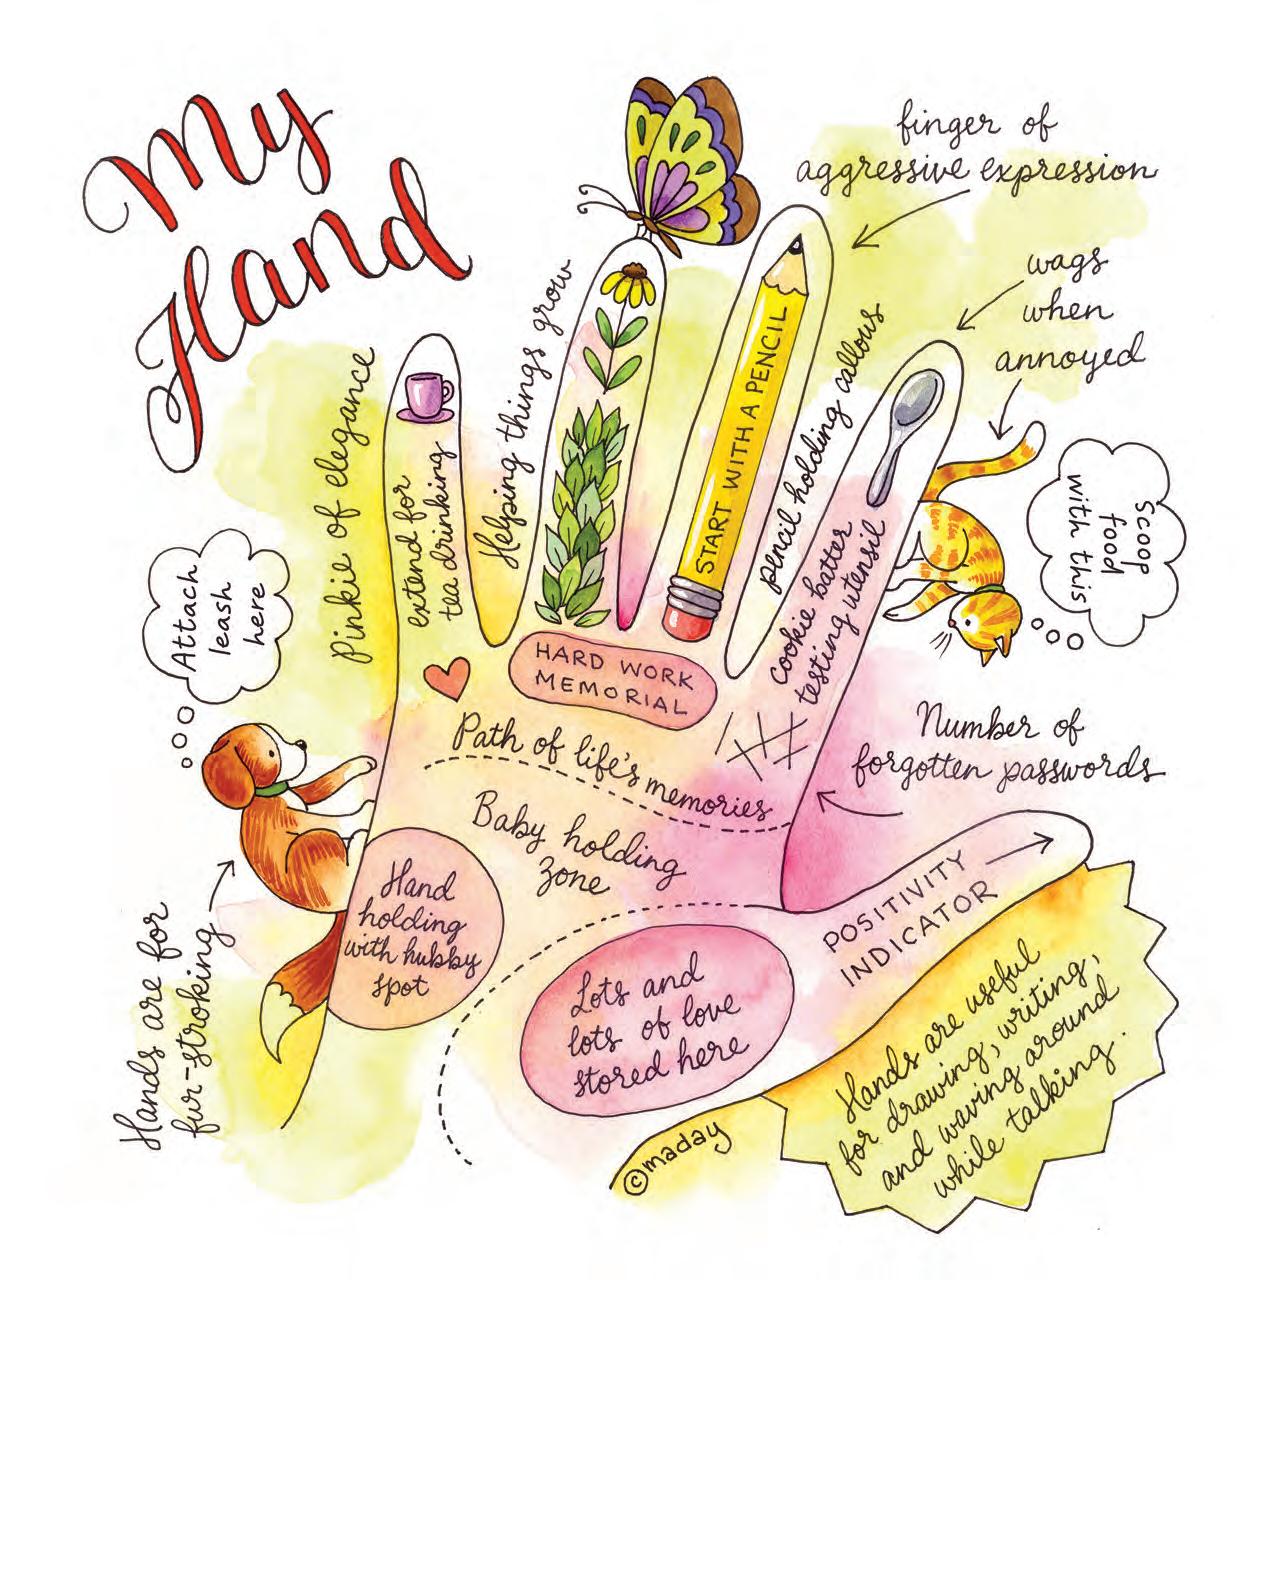 My
Hand
finger of
aggressive expression
wags
when
annoyed
Helping things grow
Pinkie of elegance
extend for
tea drinking
START WITH A PENCIL
pencil holding callous
cookie batter
testing utensil
Scoop
food
with this
Attach
leash
here
HARD WORK
MEMORIAL
Path of life's memories
Number of
forgotten passwords
Baby holding
zone
Hand
holding
with hubby
spot
POSITIVITY
INDICATOR
Lots and
lots of love
stored here
Hands are for
fur-stroking
Hands are useful
for drawing, writing,
and waving around
while talking.
©maday